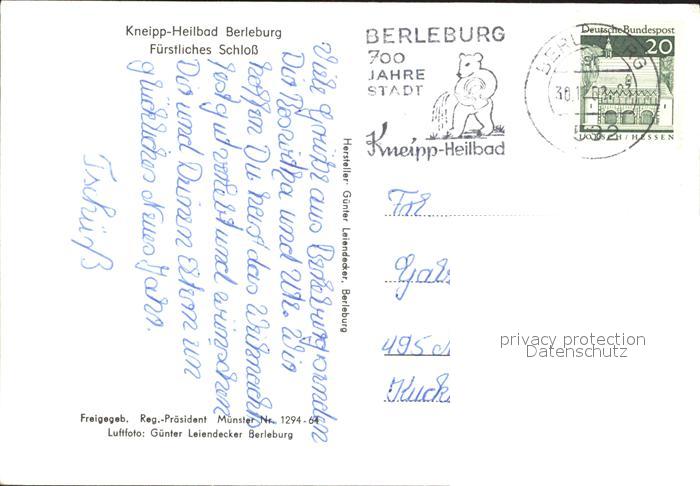 Kneipp-Heilbad Berleburg
Fürstliches Schloß
BERLEBURG
700
JAHRE
STADT
Kneipp-Heilbad
Deutsche Bundespost
20
LORSCH / HESSEN
Viele Grüße aus Berleburg senden
Dir Roswitha und Ute. Wir
hoffen Du hast das Weihnachts
fest gut verlebt und wünschen
Dir und Deinen Eltern ein
glückliches Neues Jahr.
Tschüß
Hersteller: Günter Leiendecker, Berleburg
Frl
Gab
495
Kuck
privacy protection
Datenschutz
Freigegeb. Reg.-Präsident Münster Nr. 1294-64
Luftfoto: Günter Leiendecker Berleburg